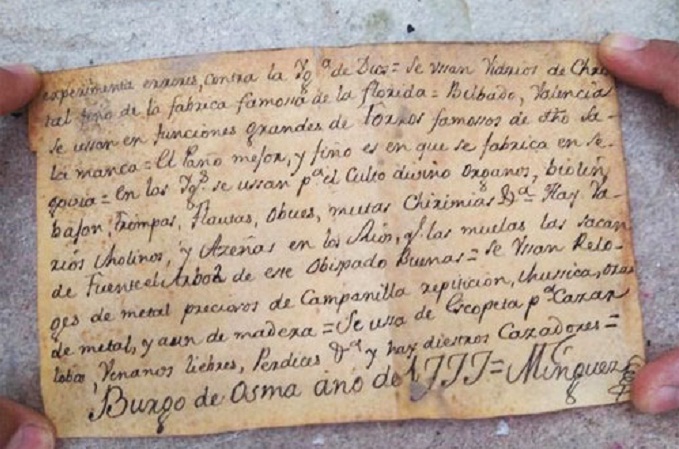 experimenta errores, contra la Yg.ª de Dios = Se vssan Vidrios de Chris
tal fino de la fabrica famosa de la florida = Bilbado, Valencia
Se ussan en funciones grandes de torros famossos de dho Sa-
la manca = El Pano mejor, y fino es en que se fabrica en Se-
govia = En las Yg.s se ussan p.ª el Culto divino Organos, biolin
bajon, trompas, flautas, obues, muttas Chirimias &ª = Hay Va-
rios Molinos, y Azeñas en los Rios, y las muelas las sacan
de Fuentelarbol de este Obispado Buenas = Se Vssan Relo-
ges de metal preciosos de Campanilla repiticion, Mussica, otros
de metal, y aun de madera = Se ussa de Escopeta p.ª Cazar
lobos, Venanos liebres, Perdices &ª y hay diestros Cazadores =
Burgo de Osma año de 1777 = Minguez